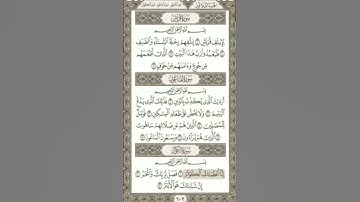 سورة قريش
بسم الله الرحمن الرحيم
لإيلاف قريش ١ إيلافهم رحلة الشتاء والصيف
٢ فليعبدوا رب هذا البيت ٣ الذي أطعمهم
من جوع وءامنهم من خوف ٤
سورة الماعون
بسم الله الرحمن الرحيم
أرءيت الذي يكذب بالدين ١ فذلك الذي يدع
اليتيم ٢ ولا يحض على طعام المسكين ٣ فويل
للمصلين ٤ الذين هم عن صلاتهم ساهون
٥ الذين هم يراءون ٦ ويمنعون الماعون ٧
سورة الكوثر
بسم الله الرحمن الرحيم
إنا أعطينك الكوثر ١ فصل لربك وانحر ٢
إن شانئك هو الأبتر ٣
٦٠٢